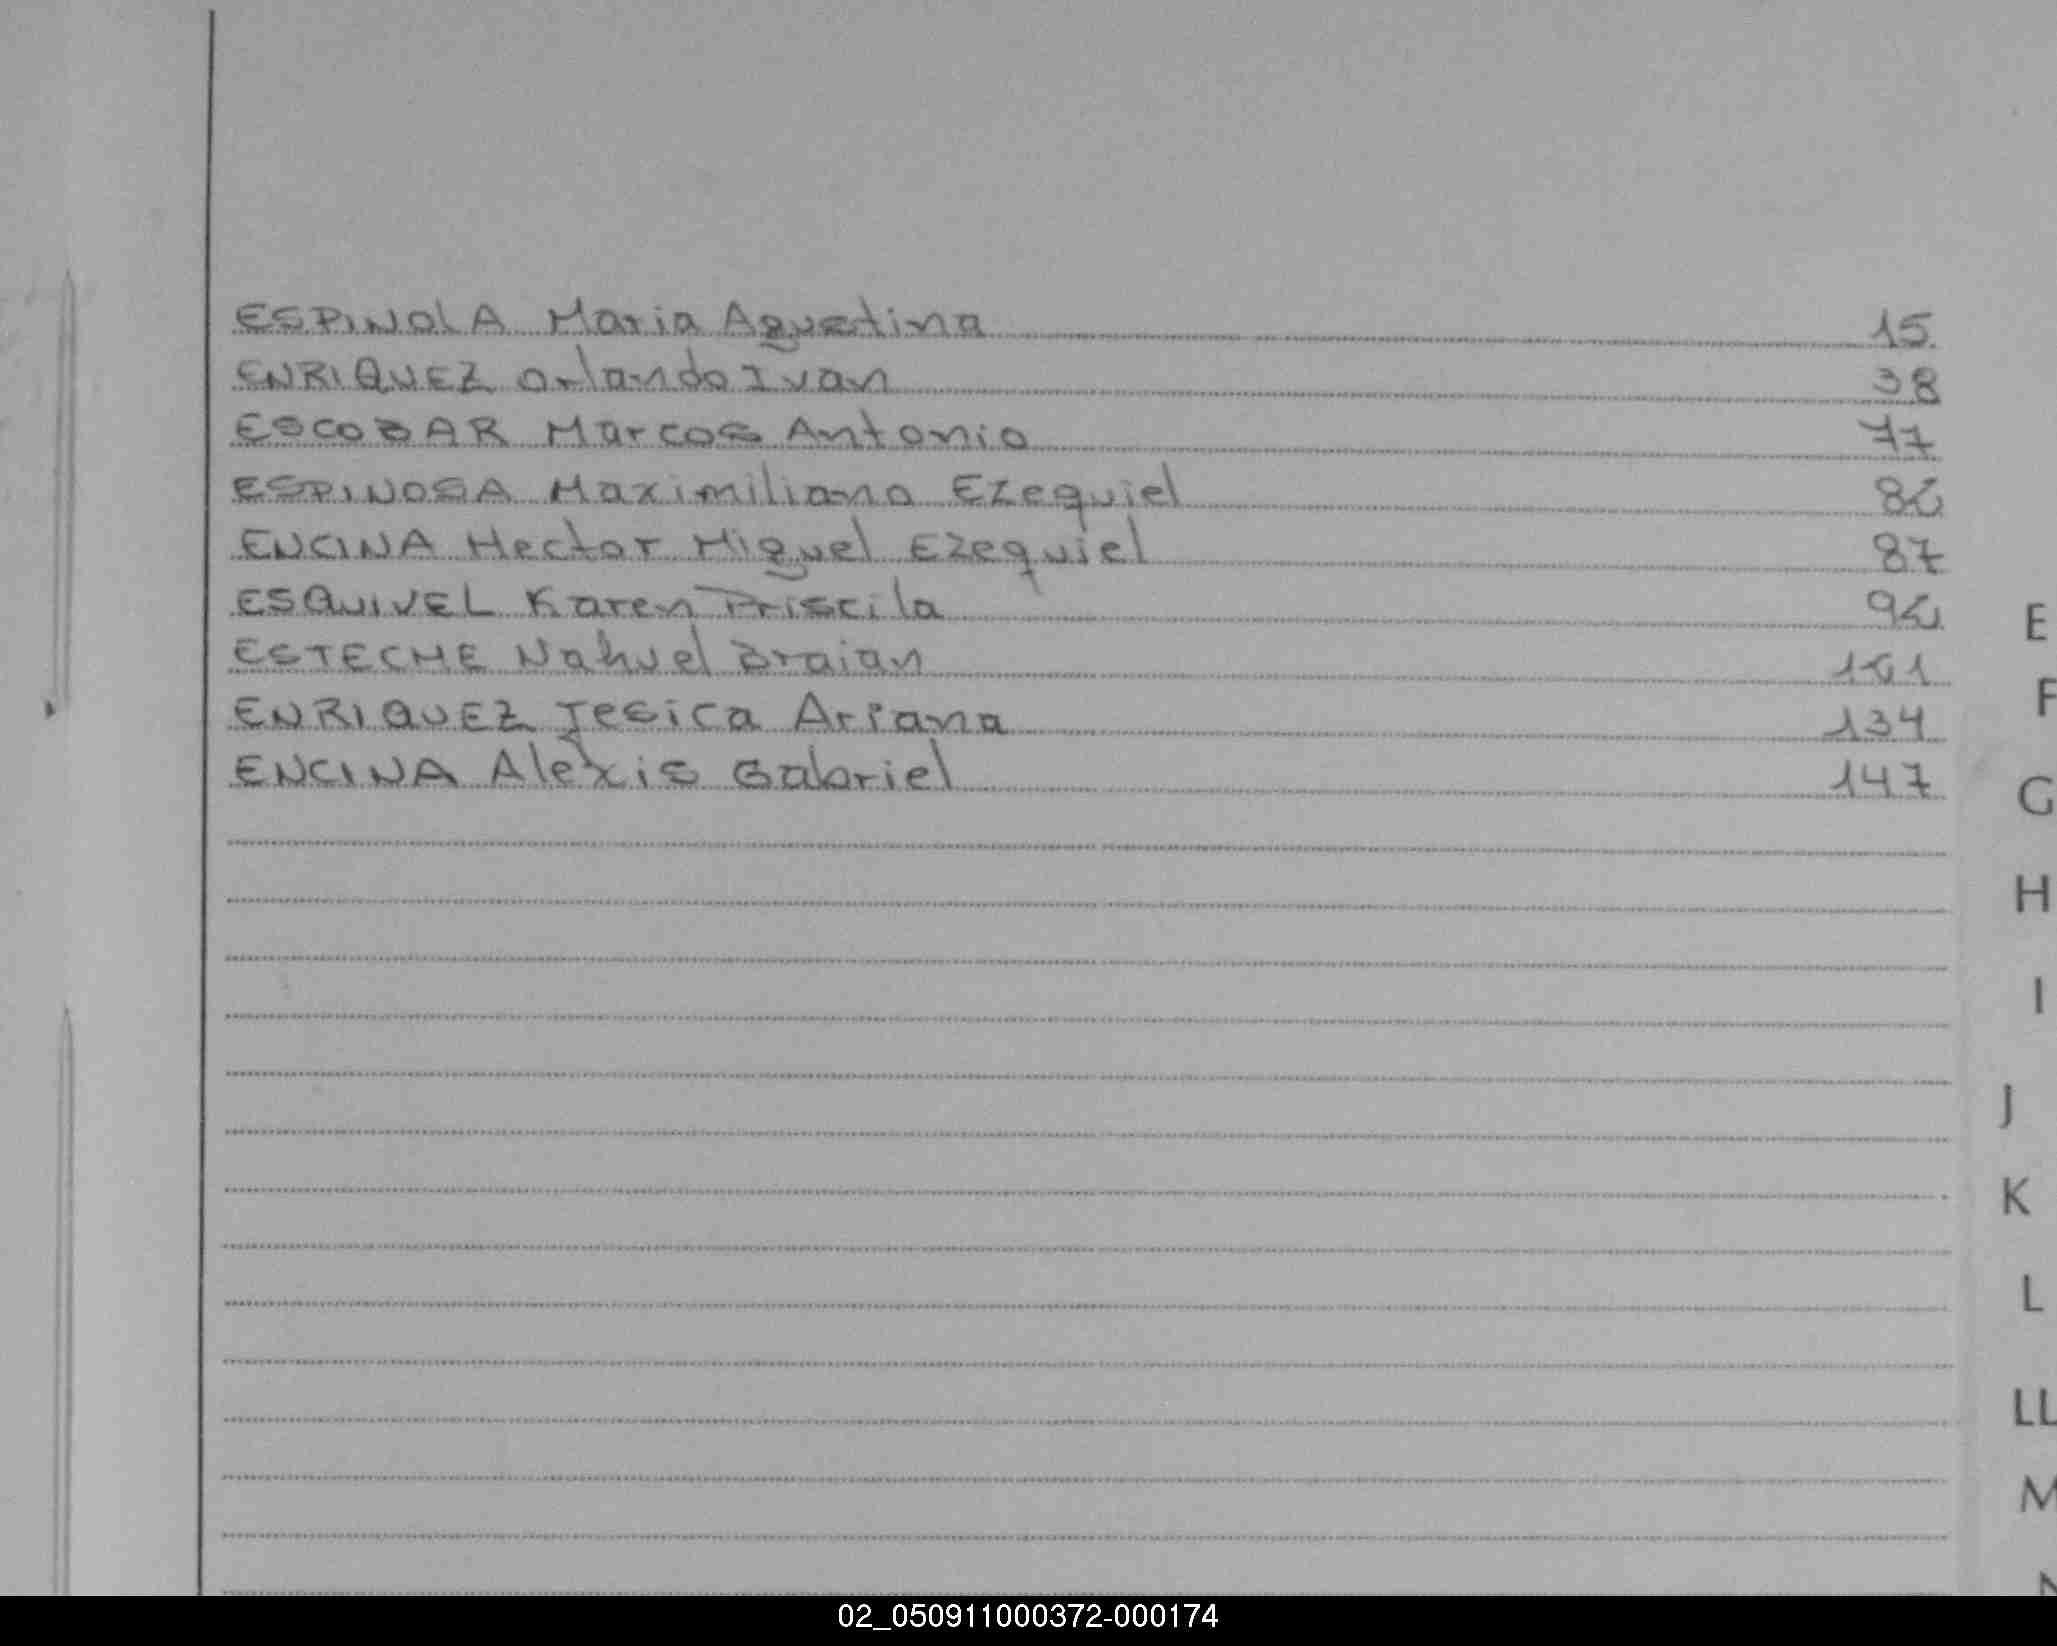 ESPINOLA Maria Agustina 15
ENRIQUEZ Orlando Ivan 38
ESCOBAR Marcos Antonio 77
ESPINOSA Maximiliano Ezequiel
ENCINA Hector Miguel Ezequiel 87
ESQUIVEL Karen Priscila
ESTECHE Nahuel Braian
ENRIQUEZ Jesica Ariana 134
ENCINA Alexis Gabriel 147
E
F
G
H
I
J
K
L
LL
M
N
02_050911000372-000174